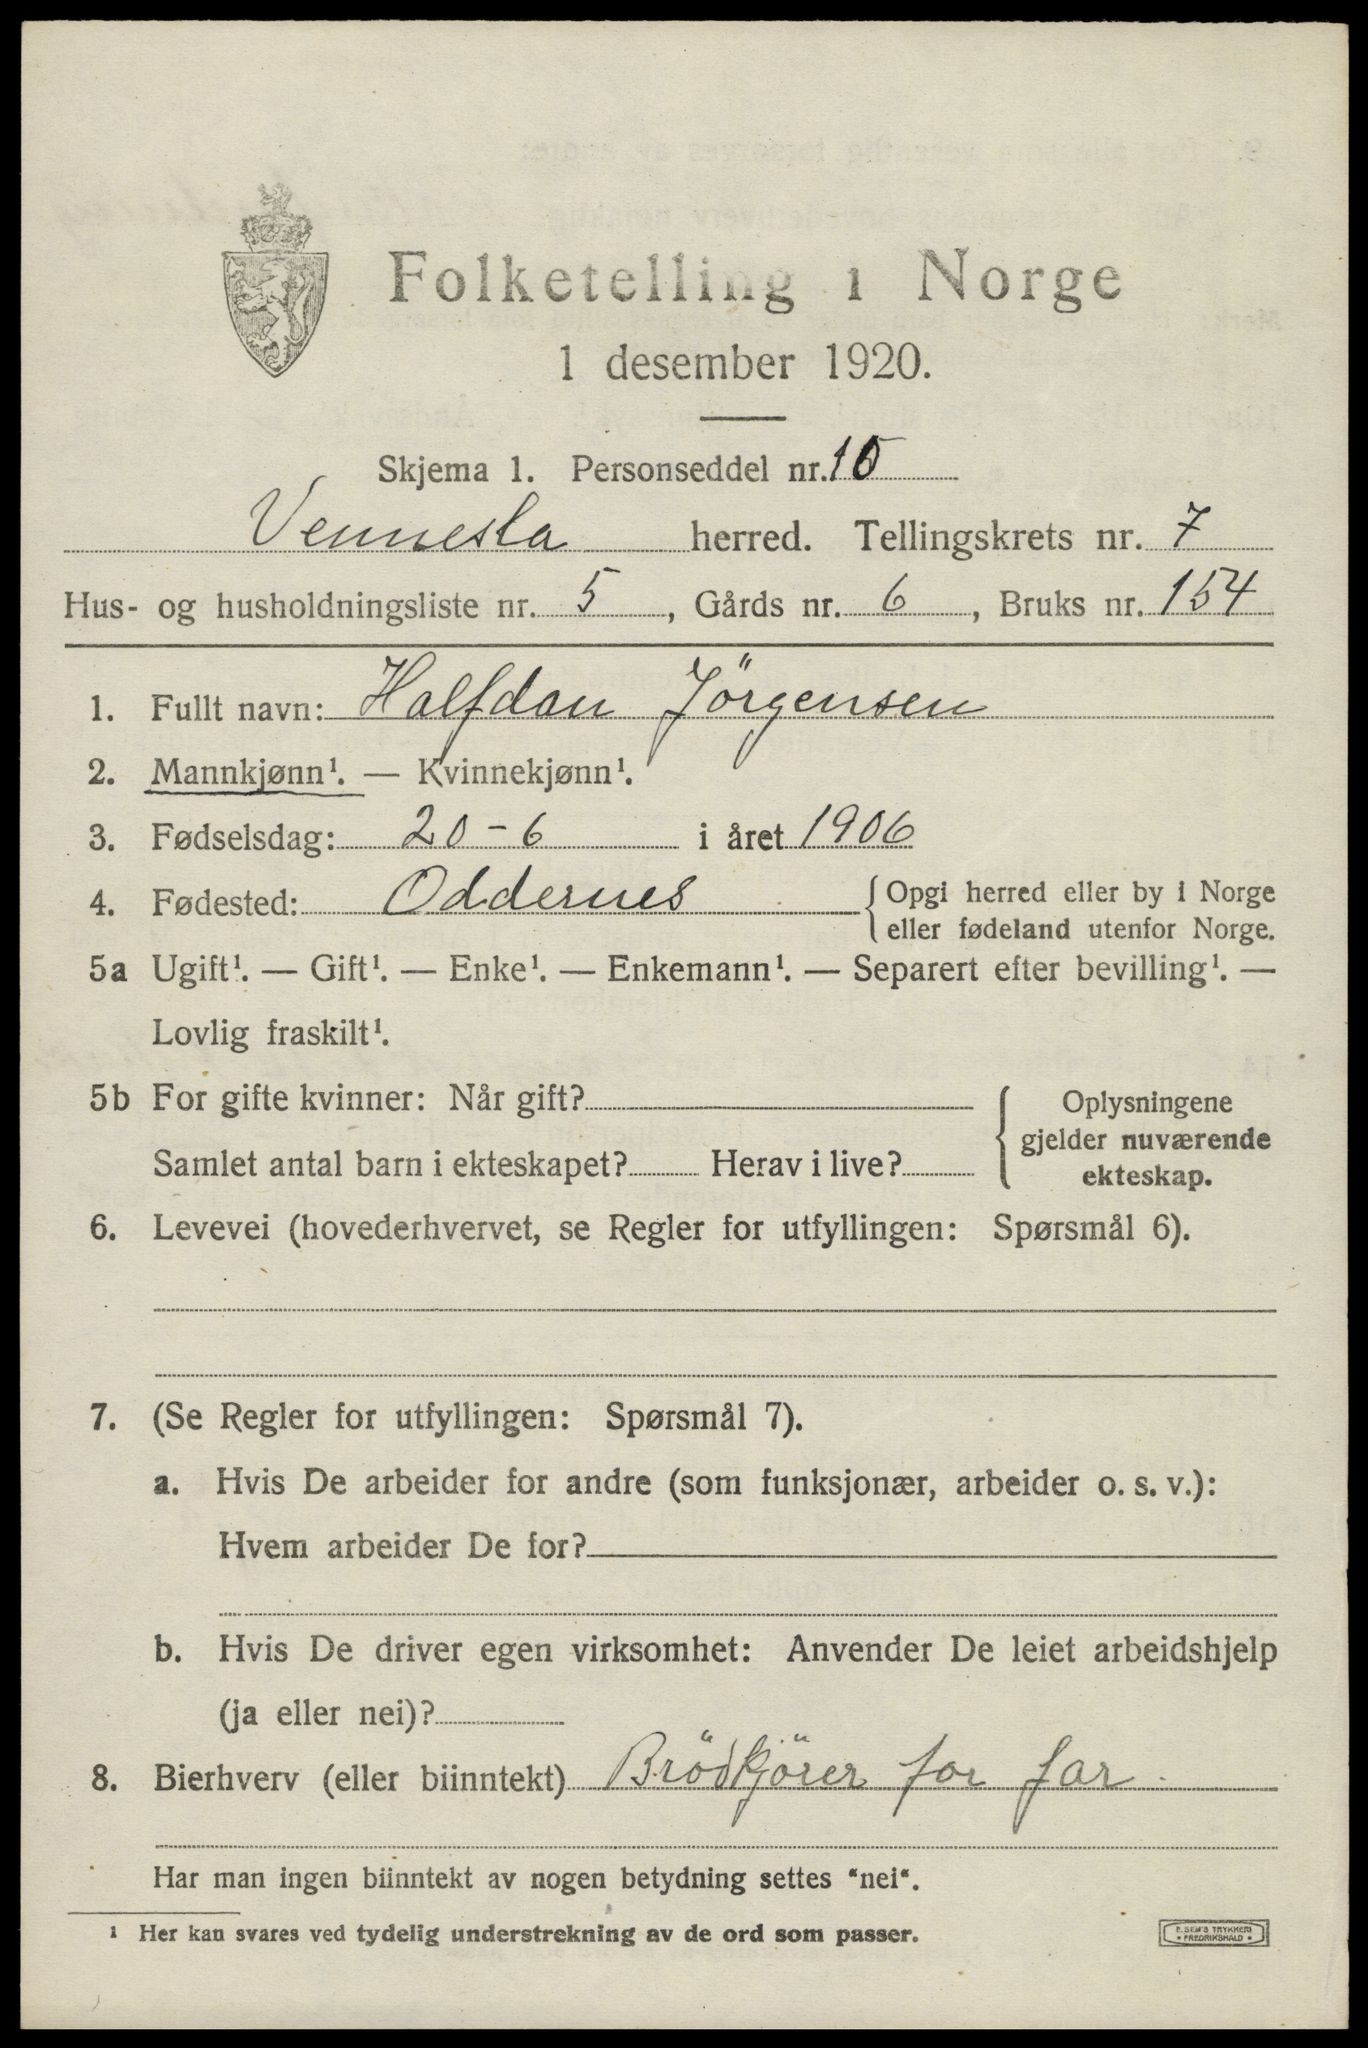 Folketelling i Norge
1 desember 1920.
Skjema 1. Personseddel nr. 10
Vennesla herred. Tellingskrets nr. 7
Hus- og husholdningsliste nr. 5, Gårds nr. 6, Bruks nr. 154
1. Fullt navn: Halfdan Jörgensen
2. Mannkjønn¹. — Kvinnekjønn¹.
3. Fødselsdag: 20-6 i året 1906
4. Fødested: Oddernes { Opgi herred eller by i Norge
eller fødeland utenfor Norge.
5a Ugift¹. — Gift¹. — Enke¹. — Enkemann¹. — Separert efter bevilling¹. —
Lovlig fraskilt¹.
5b For gifte kvinner: Når gift? { Oplysningene
gjelder nuværende
Samlet antal barn i ekteskapet? Herav i live? ekteskap.
6. Levevei (hovederhvervet, se Regler for utfyllingen: Spørsmål 6).
7. (Se Regler for utfyllingen: Spørsmål 7).
a. Hvis De arbeider for andre (som funksjonær, arbeider o. s. v.):
Hvem arbeider De for?
b. Hvis De driver egen virksomhet: Anvender De leiet arbeidshjelp
(ja eller nei)?
8. Bierhverv (eller biinntekt) Brödkjörer for far.
Har man ingen biinntekt av nogen betydning settes "nei".
¹ Her kan svares ved tydelig understrekning av de ord som passer.
E. SEM'S TRYKKERI
FREDRIKSHALD